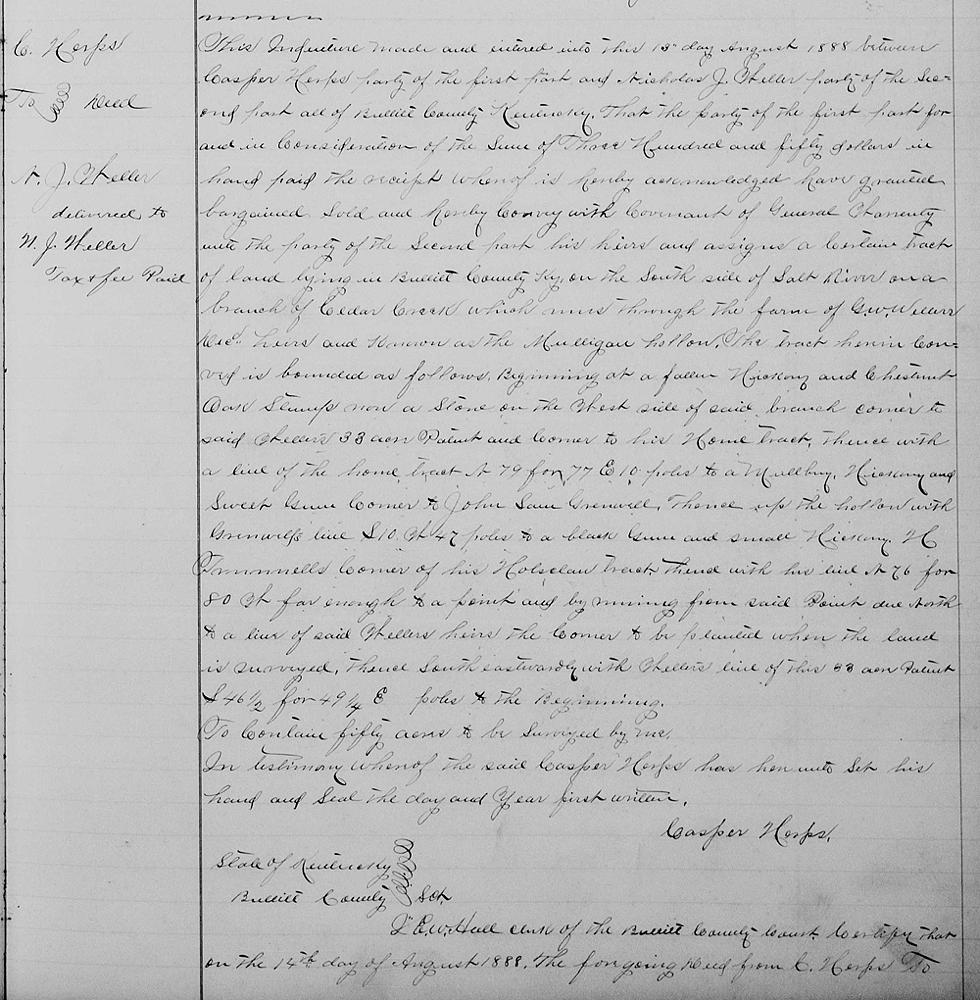 C. Herps
To Deed
N. J. Weller
delivered to
N. J. Weller
Tax & fee Paid
This Indenture made and intered into this 13" day August 1888 between
Casper Herps party of the first part and Nicholas J. Weller party of the Sec-
ond part all of Bullitt County Kentucky. That the party of the first part for
and in Consideration of the Sum of Three Hundred and fifty dollars in
hand paid the reciept whereof is hereby acknowledged have granted
bargained Sold and hereby Convey with Covenant of General Warrenty
unto the party of the Second part his heirs and assigns a Certain tract
of land lying in Bullitt County Ky, on the South side of Salt River on a
branch of Cedar Creek which runs through the farm of G.W. Wellers
Decd. heirs and Known as the Mulligan hollow. The tract herein Con-
veyd is bounded as follows. Beginning at a fallen Hickory and Chestnut
Oak Stump now a Stone on the West side of said branch corner to
said Wellers 33 acre Patent and Corner to his Home tract, thence with
a line of the home tract N 79 for 77 E 10 poles to a Mullbury, Hickory and
Sweet Gum Corner to John Sam Grenwell, Thence up the hollow with
Grenwells line S 10 W 47 poles to a black Gum and small Hickory. H
Trunnells Corner of his Holsclaw tract, thence with his line N 76 for
80 W far enough to a point and by running from said Point due North
to a line of said Wellers heirs the Corner to be planted when the land
is surveyed, thence South eastwardly with Wellers line of this 33 acre Patent
S 46 1/2 for 49 1/4 E poles to the Beginning.
To Contain fifty acres to be Surveyed by me.
In testimony whereof the said Casper Herps has here unto Set his
hand and Seal the day and Year first written.
Casper Herps.
State of Kentucky
Bullitt County Sct.
I C.W. Hall clerk of the Bullitt County Court Certify that
on the 14th day of August 1888. The foregoing Deed from C. Herps To